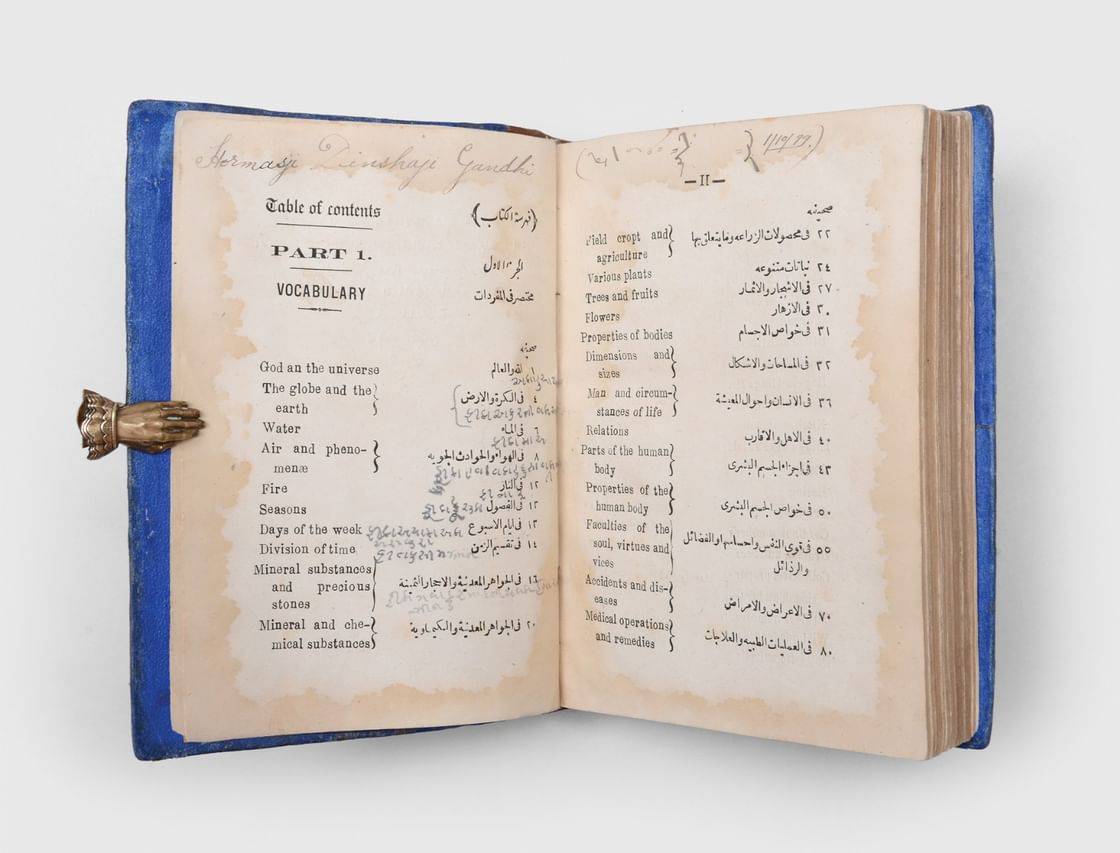 Hormasji Dinshaji Gandhi
Table of contents
(فهرسة الكتاب)
PART 1.
الجزء الاول
VOCABULARY
مختصر فى المفردات
صحيفه
God an the universe
١ الله والعالم
The globe and the
earth
٤ فى الكرة والارض
Water
٦ فى الماء
Air and pheno-
menæ
٨ فى الهواء والحوادث الجويه
Fire
١٢ فى النار
Seasons
١٢ فى الفصول
Days of the week
١٣ فى ايام الاسبوع
Division of time
١٤ فى تقسيم الزمن
Mineral substances
and precious
stones
١٦ فى الجواهر المعدنية والاحجار الثمينة
Mineral and che-
mical substances
٢٠ فى الجواهر المعدنية والكيماوية
1/10/99
—II—
صحيفه
Field cropt and
agriculture
٢٢ فى محصولات الزراعه وما يتعلق بها
Various plants
٢٤ نباتات متنوعه
Trees and fruits
٢٧ فى الاشجار والاثمار
Flowers
٣٠ فى الازهار
Properties of bodies
٣١ فى خواص الاجسام
Dimensions and
sizes
٣٢ فى المساحات والاشكال
Man and circum-
stances of life
٣٦ فى الانسان واحوال المعيشة
Relations
٤٠ فى الاهل والاقارب
Parts of the human
body
٤٣ فى اجزاء الجسم البشرى
Properties of the
human body
٥٠ فى خواص الجسم البشرى
Faculties of the
soul, virtues and
vices
٥٥ فى قوى النفس واحساسها والفضائل
والرذائل
Accidents and dis-
eases
٧٠ فى الاعراض والامراض
Medical operations
and remedies
٨٠ فى العمليات الطبيه والعلاجات